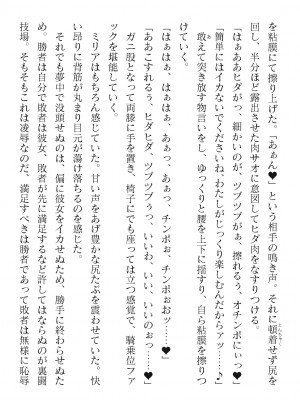 を粘膜にて擦り上げた。「あぁん♥」という相手の鳴き声。それに頓着せず尻を
回し、半分ほど露出させた肉サオに意図してヒダ肉をなすりつける。
「はぁああヒダがっ、細かいのが、ツブツブがぁ、擦れるぅ、オチンポにぃっ♥」
「簡単にはイカないでくださいね、わたしがじっくり楽しむんだからアッ…♪」
敢えて突き放す物言いをし、ゆっくりと腰を上下に揺すり、自ら粘膜を擦りつ
けていく。
「はぁっ、はぁはぁ、あぁっ、あぁっ、チンポぉ、チンポぉおッ……♥」
「ああこすれるぅ、ヒダヒダ、ツブツブぅっ、いいわ、いい、いいのぉっ……♥」
ガニ股となって両膝に手を置き、椅子にでも座っては立つ感覚で、騎乗位ファ
ックを堪能していく。
ミリアはもちろん感じていた。甘い声をあげ豊かな尻たぶを震わせていた。快
い昂りに背筋が丸まり目元が蕩け落ちるのを感じていた。
それでも夢中で没頭せぬのは、偏に彼女をイカせぬため、勝手に終わらせぬた
め。勝者は自分で敗者は彼女、敗者が先に満足するなど許してはならぬのが裏闘
技場。そもそもこれは凌辱なのだ、満足すべきは勝者であって敗者は無様に恥辱